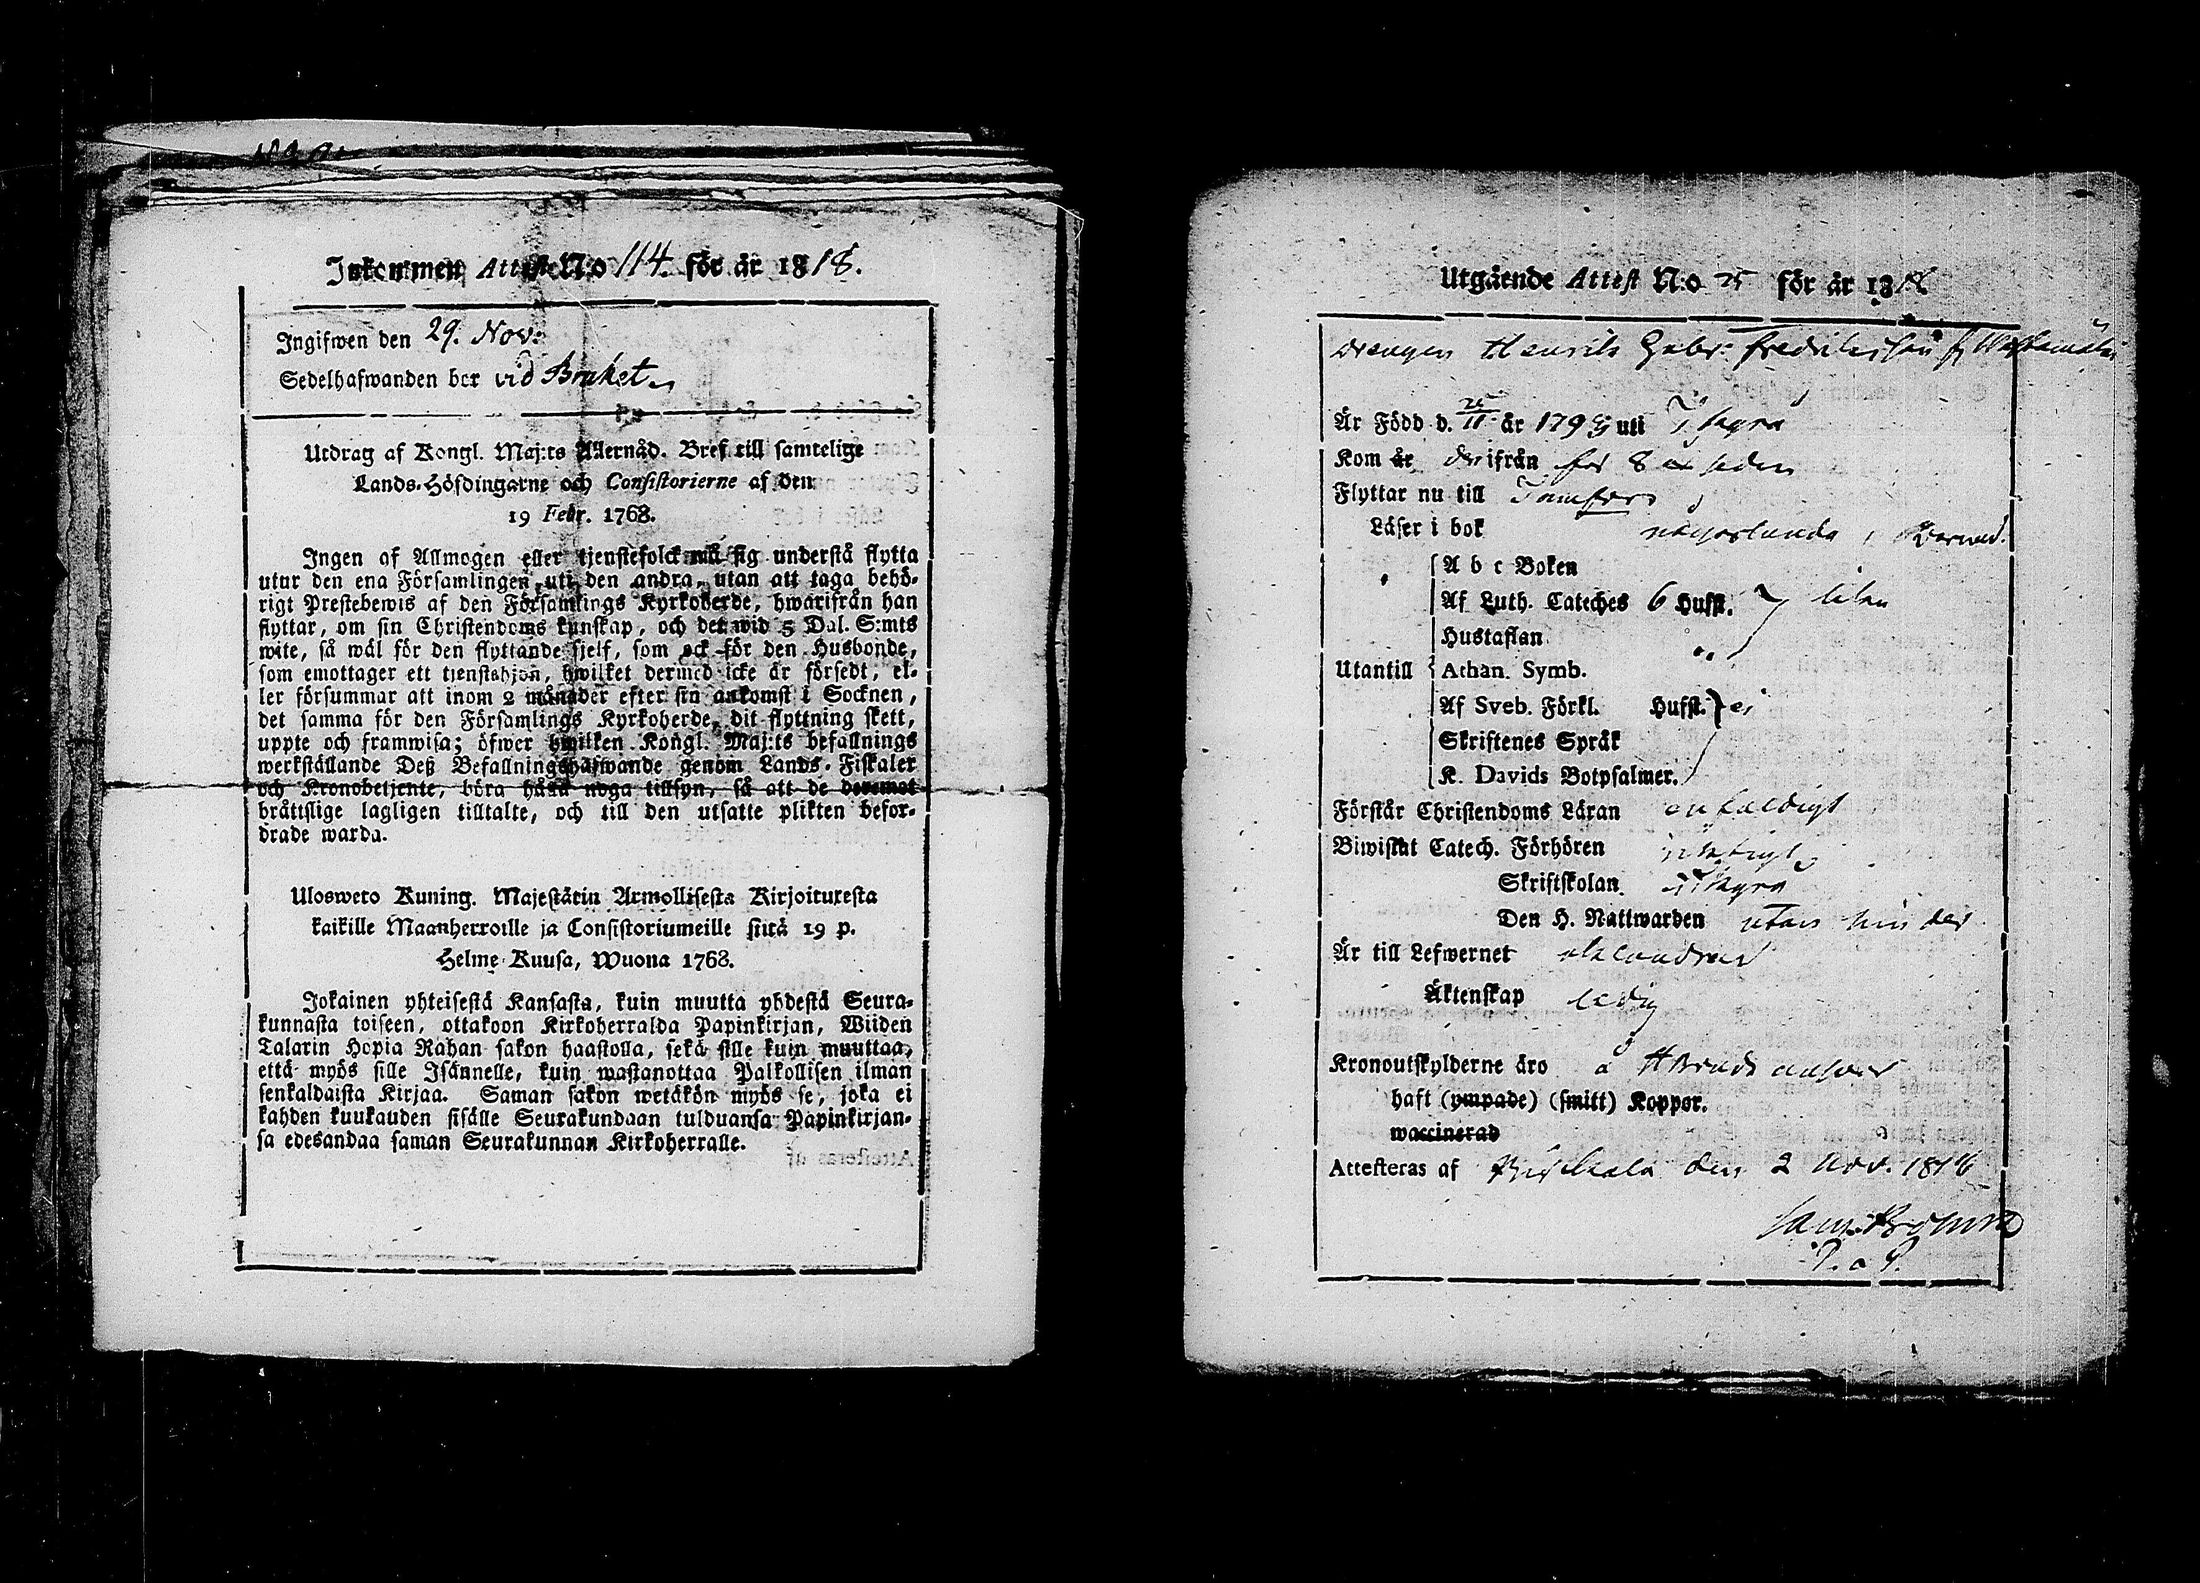 Inkommen Attest N:o 114. för år 1818.
Ingifwen den 29. Nov:
Sedelhafwanden bor vid Bruket.
Utdrag af Kongl. Maj:ts Allernåd. Bref till samtelige
Lands-Höfdingarne och Consistorierne af den
19 Febr. 1768.
Ingen af Allmogen eller tjenstefolck må sig understå flytta
utur den ena Församlingen uti den andra, utan att taga behö-
rigt Prestebewis af den Församlings Kyrkoherde, hwarifrån han
flyttar, om sin Christendoms kunskap, och det wid 5 Dal. S:mts
wite, så wäl för den flyttande sjelf, som ock för den Husbonde,
som emottager ett tjenstehjon, hwilket dermed icke är försedt, el-
ler försummar att inom 2 månader efter sin ankomst i Socknen,
det samma för den Församlings Kyrkoherde, dit flyttning skett,
uppte och framwisa; öfwer hwilken Kongl. Maj:ts befallnings
werkställande Deß Befallningshafwande genom Lands-Fiskaler
och Kronobetjente, böra hålla noga tillsyn, så att de deremot
bråttslige lagligen tilltalte, och till den utsatte plikten befor-
drade warda.
Uloswero Kuning. Majestätin Armollisesta Kirjoituxesta
kaikille Maanherroille ja Consistoriumeille siitä 19 p.
Helme-Kuusa, Wuona 1768.
Jokainen yhteisestä Kansasta, kuin muutta yhdestä Seura-
kunnasta toiseen, ottakoon Kirkoherralda Papinkirjan, Wiiden
Talarin Hopia Rahan sakon haastolla, sekä sille kuin muuttaa,
että myös sille Isännelle, kuin wastanottaa Palkollisen ilman
senkaldaista Kirjaa. Saman sakon wetäkön myös se, joka ei
kahden kuukauden sisälle Seurakundaan tulduansa Papinkirjan-
sa edesandaa saman Seurakunnan Kirkoherralle.
Utgående Attest N:o 25 för år 1818.
Drengen Henrik Gabr: Fredriksson fr
Är Född d. 25/11 år 179 uti
Kom år derifrån för 8 år sedan
Flyttar nu till Tamfors
Läser i bok någorlunda,
A b c Boken
Af Luth. Cateches 6 Hufst.
Hustaflan
Utantill Athan. Symb.
Af Sveb. Förkl. Hufst. ej
Skriftenes Språk
K. Davids Botpsalmer.
Förstår Christendoms Läran enfaldigt
Biwistat Catech. Förhören
Skriftskolan
Den H. Nattwarden utan hinder
Är till Lefwernet oklandrad
Äktenskap ledig
Kronoutskylderne äro å
haft (ympade) (smitt) Koppor.
waccinerad
Attesteras af den 2 Nov. 1818
Sam:
P. a P.